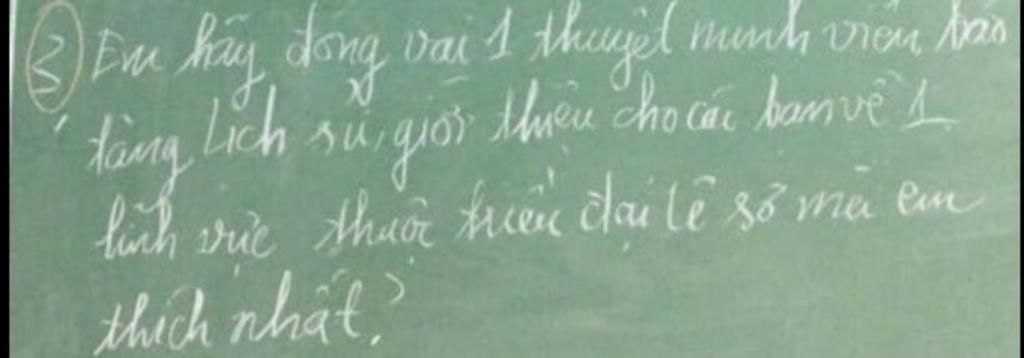 ③ Em hãy đóng vai 1 thuyết minh viên bảo
tàng Lịch sử, giới thiệu cho các bạn về 1
lĩnh vực thuộc triều đại Lê sơ mà em
thích nhất?